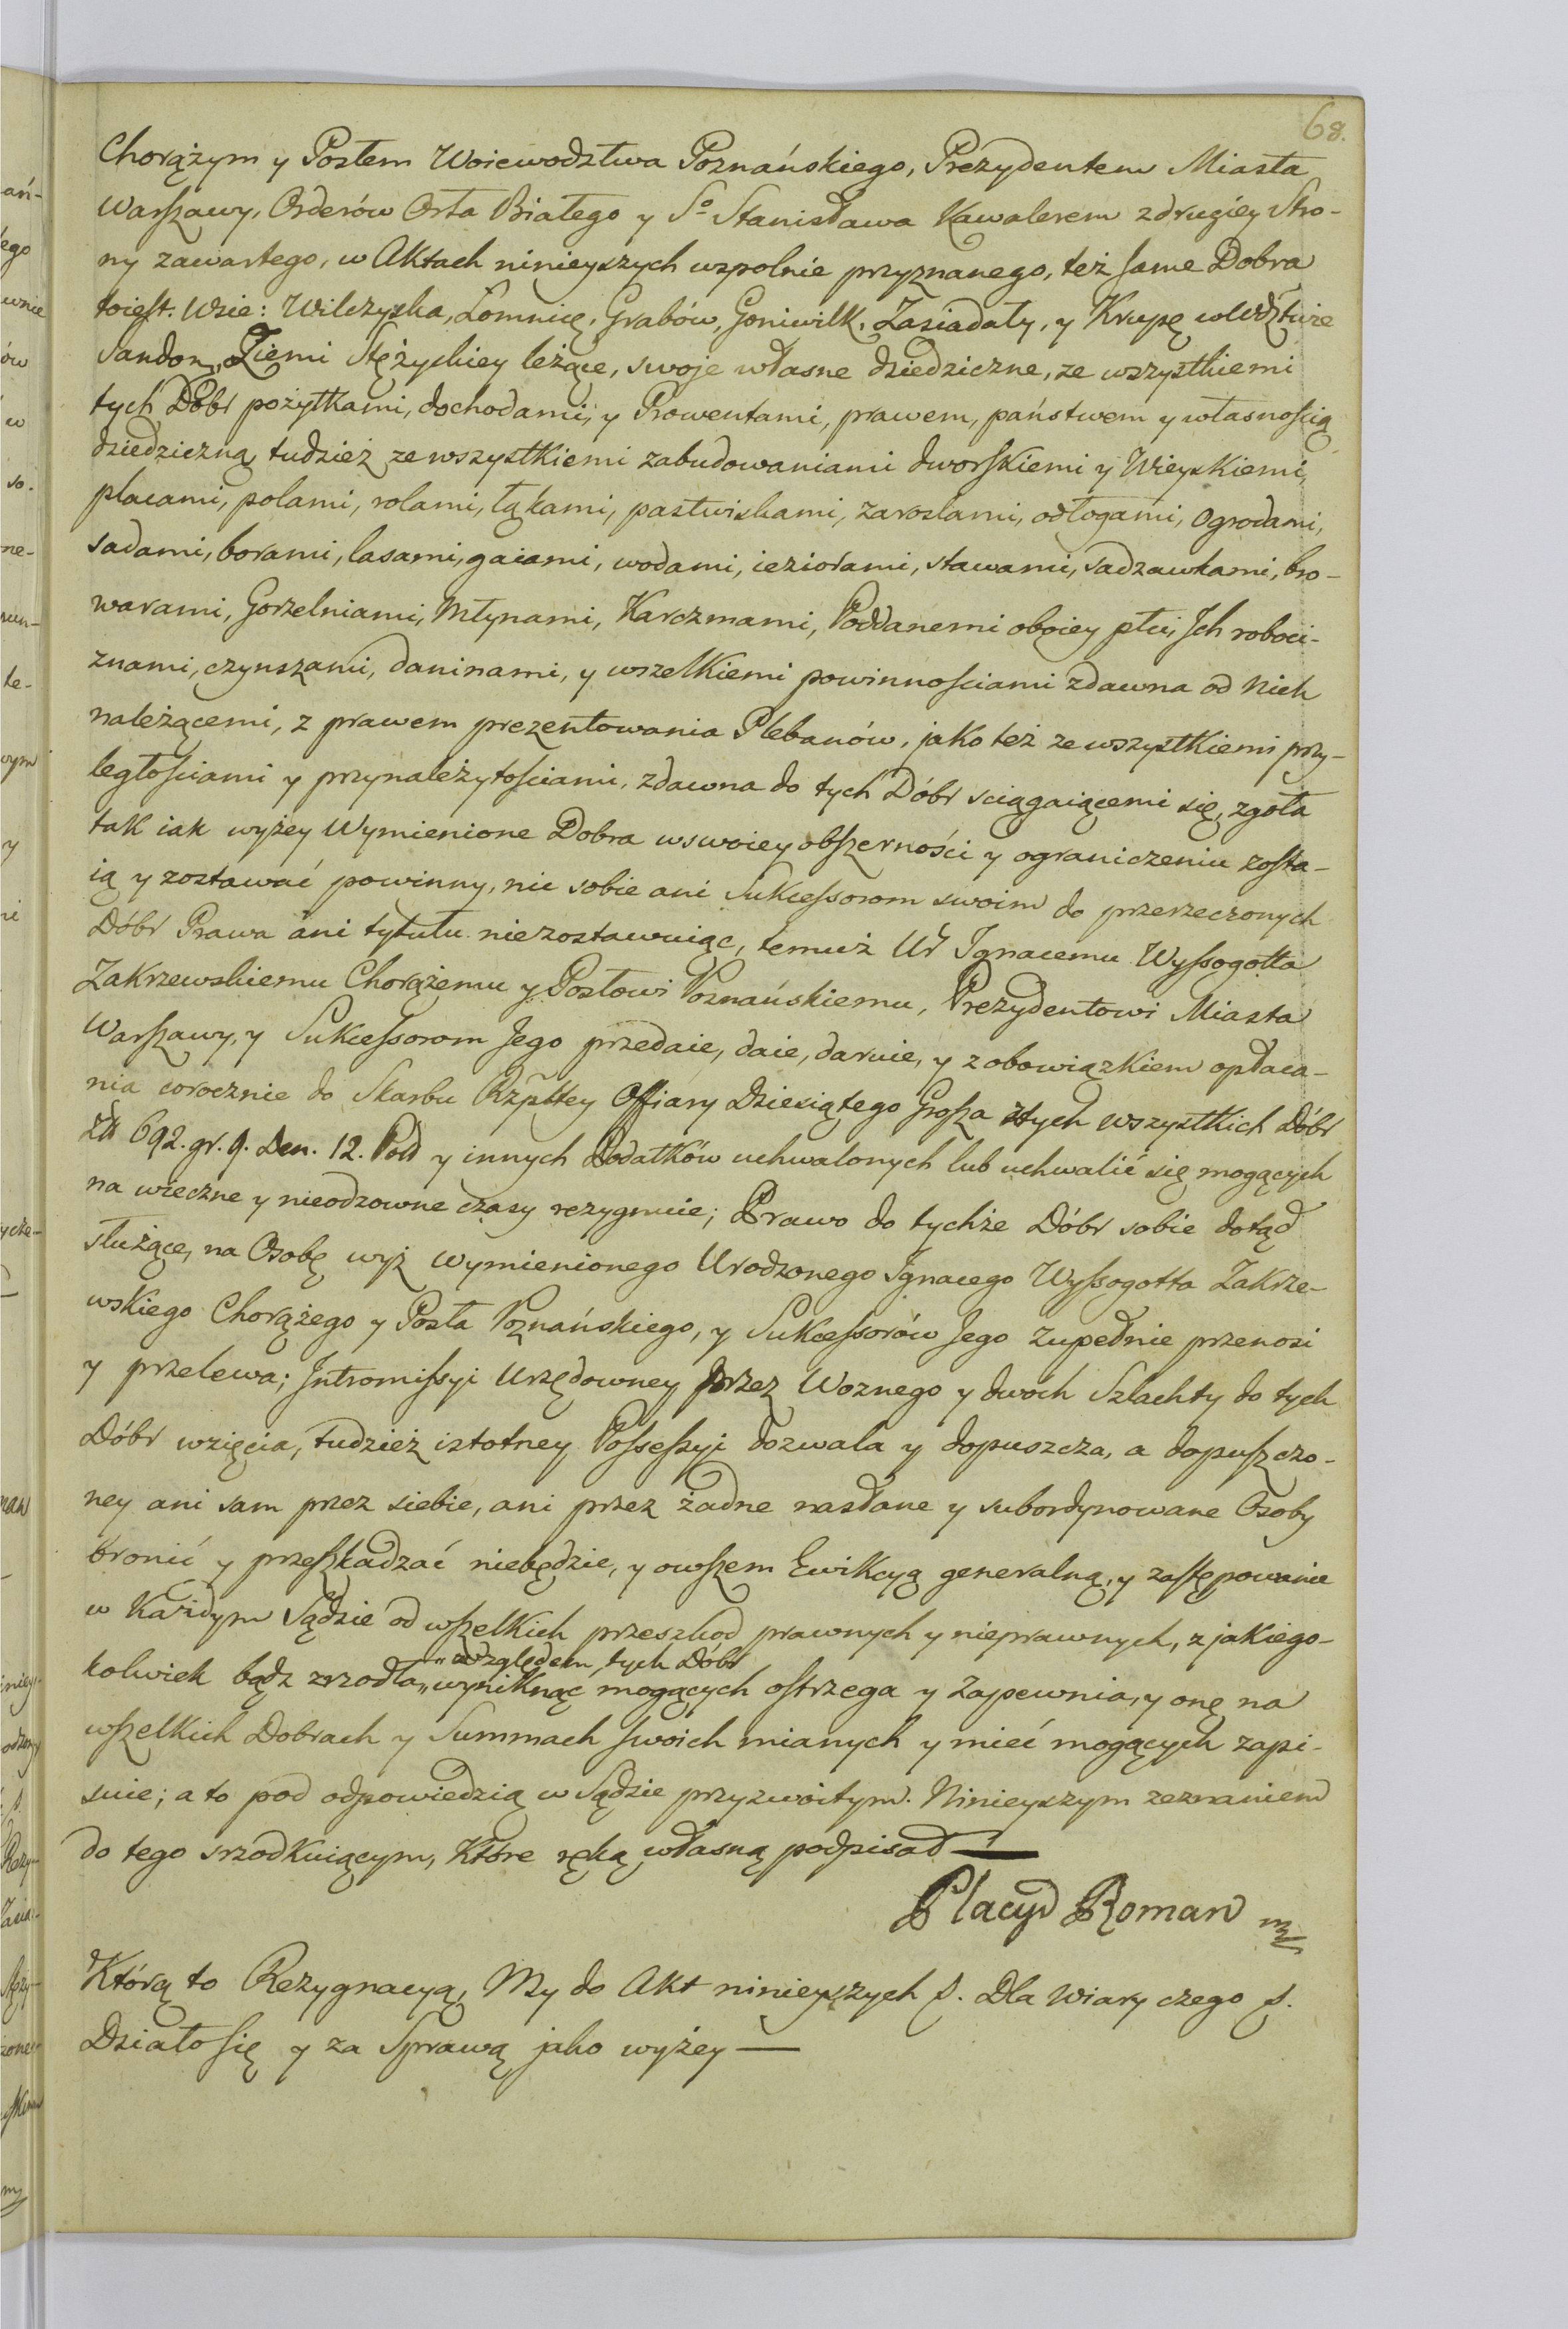 68.
Chorążym y Posłem Woiewodztwa Poznańskiego, Prezydentem Miasta
Warszawy, Orderów Orła Białego y So Stanisława Kawalerem z drugiéy Stro-
ny zawartego, w Aktach ninieyszych wzpolnie przyznanego, też same Dobra
toiest. Wsie: Wilczyska, Łomnicę, Grabów, Goniwilk, Zasiadały, y Krupę w Wdztwie
Sandom, Ziemi Stężyckiey leżące, swoje własne dziedziczne, ze wszystkiemi
tych Dóbr pożytkami, dochodami, y Prowentami, prawem, państwem y własnością
dziedziczną tudzież ze wszystkiemi zabudowaniami dworskiemi y Wieyskiemi,
placami, polami, rolami, łąkami, pastwiskami, zaroslami, odłogami, Ogrodami,
sadami, borami, lasami, gaiami, wodami, ieziorami, stawami, sadzawkami, bro-
warami, Gorzelniami, Młynami, Karczmami, Poddanemi oboiey płci, Jch roboci-
znami, czynszami, daninami, y wszelkiemi powinnościami zdawna od Nich
należącemi, z prawem prezentowania Plebanów, jako też ze wszystkiemi przy-
ległościami y przynależytościami, zdawna do tych Dóbr sciągaiącemi się, zgoła
tak iak wyżey Wymienione Dobra w swoiey obszerności y ograniczeniu zosta-
ią y zostawać powinny, nic sobie ani Sukcessorom swoim do przerzeczonych
Dóbr Prawa ani tytułu niezostawuiąc, temuż Ur Ignacemu Wyssogotta
Zakrzewskiemu Chorążemu y Posłowi Poznańskiemu, Prezydentowi Miasta
Warszawy, y Sukcessorom Jego przedaie, daie, daruie, y z obowiązkiem opłaca-
nia corocznie do Skarbu Rzpltey Offiary Dziesiątego Grosza z tych wszystkich Dóbr
Zł 692. gr. 9. Den. 12. Pold y innych Podatków uchwalonych lub uchwalić się mogących
na wieczne y nieodzowne czasy rezygnuie; Prawo do tychże Dóbr sobie dotąd
służące, na Osobę wyż wymienionego Urodzonego Ignacego Wyssogotta Zakrze-
wskiego Chorążego y Posła Poznańskiego, y Sukcessorów Jego zupełnie przenosi
y przelewa; Jntromissyi Urzędowney przez Woznego y dwoch Szlachty do tych
Dóbr wzięcia, tudzież istotney Possessyi dozwala y dopuszcza, a dopuszczo-
ney ani sam przez siebie, ani przez żadne nasłane y subordynowane Osoby
bronić y przeszkadzać niebędzie, y owszem Ewikcyą generalną, y zastępowanie
w Każdym Sądzie od wszelkich przeszkod prawnych y nieprawnych, z jakiego-
" względem tych Dóbr
kolwiek bądz zrzodła " wyniknąć mogących ostrzega y zapewnia, y onę na
wszelkich Dobrach y Summach swoich mianych y mieć mogących zapi-
suie; a to pod odpowiedzią w Sądzie przyzwoitym. Ninieyszym zeznaniem
do tego srzodkuiącym, które ręką własną podpisał —
Placyd Roman
Którą to Rezygnacyą, My do Akt ninieyszych p. Dla wiary czego p.
Działo się y za Sprawą jako wyżey —